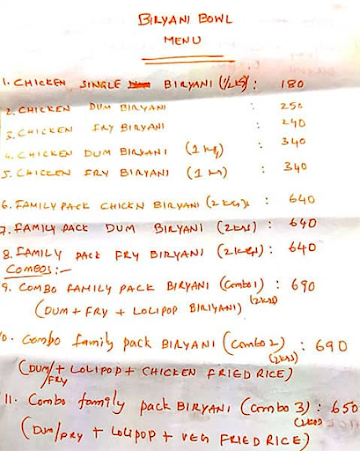 BIRYANI BOWL
MENU
1. CHICKEN SINGLE BIRYANI (1/2kg) : 180
2. CHICKEN DUM BIRYANI : 250
3. CHICKEN FRY BIRYANI : 240
4. CHICKEN DUM BIRYANI (1 kg) : 340
5. CHICKEN FRY BIRYANI (1 kg) : 340
6. FAMILY PACK CHICKN BIRYANI (2 kgs) : 640
7. FAMILY PACK DUM BIRYANI (2kgs) : 640
8. FAMILY PACK FRY BIRYANI (2kgs) : 640
COMBOS :-
9. COMBO FAMILY PACK BIRYANI (Combo 1) : 690
(2kgs)
(DUM + FRY + LOLIPOP BIRIYANI)
10. Combo family pack BIRYANI (Combo 2) : 690
(2kgs)
(DUM/FRY + LOLIPOP + CHICKEN FRIED RICE)
11. Combo family pack BIRYANI (Combo 3) : 650
(2kgs)
(Dum/FRY + LOLIPOP + VEG FRIED RICE)